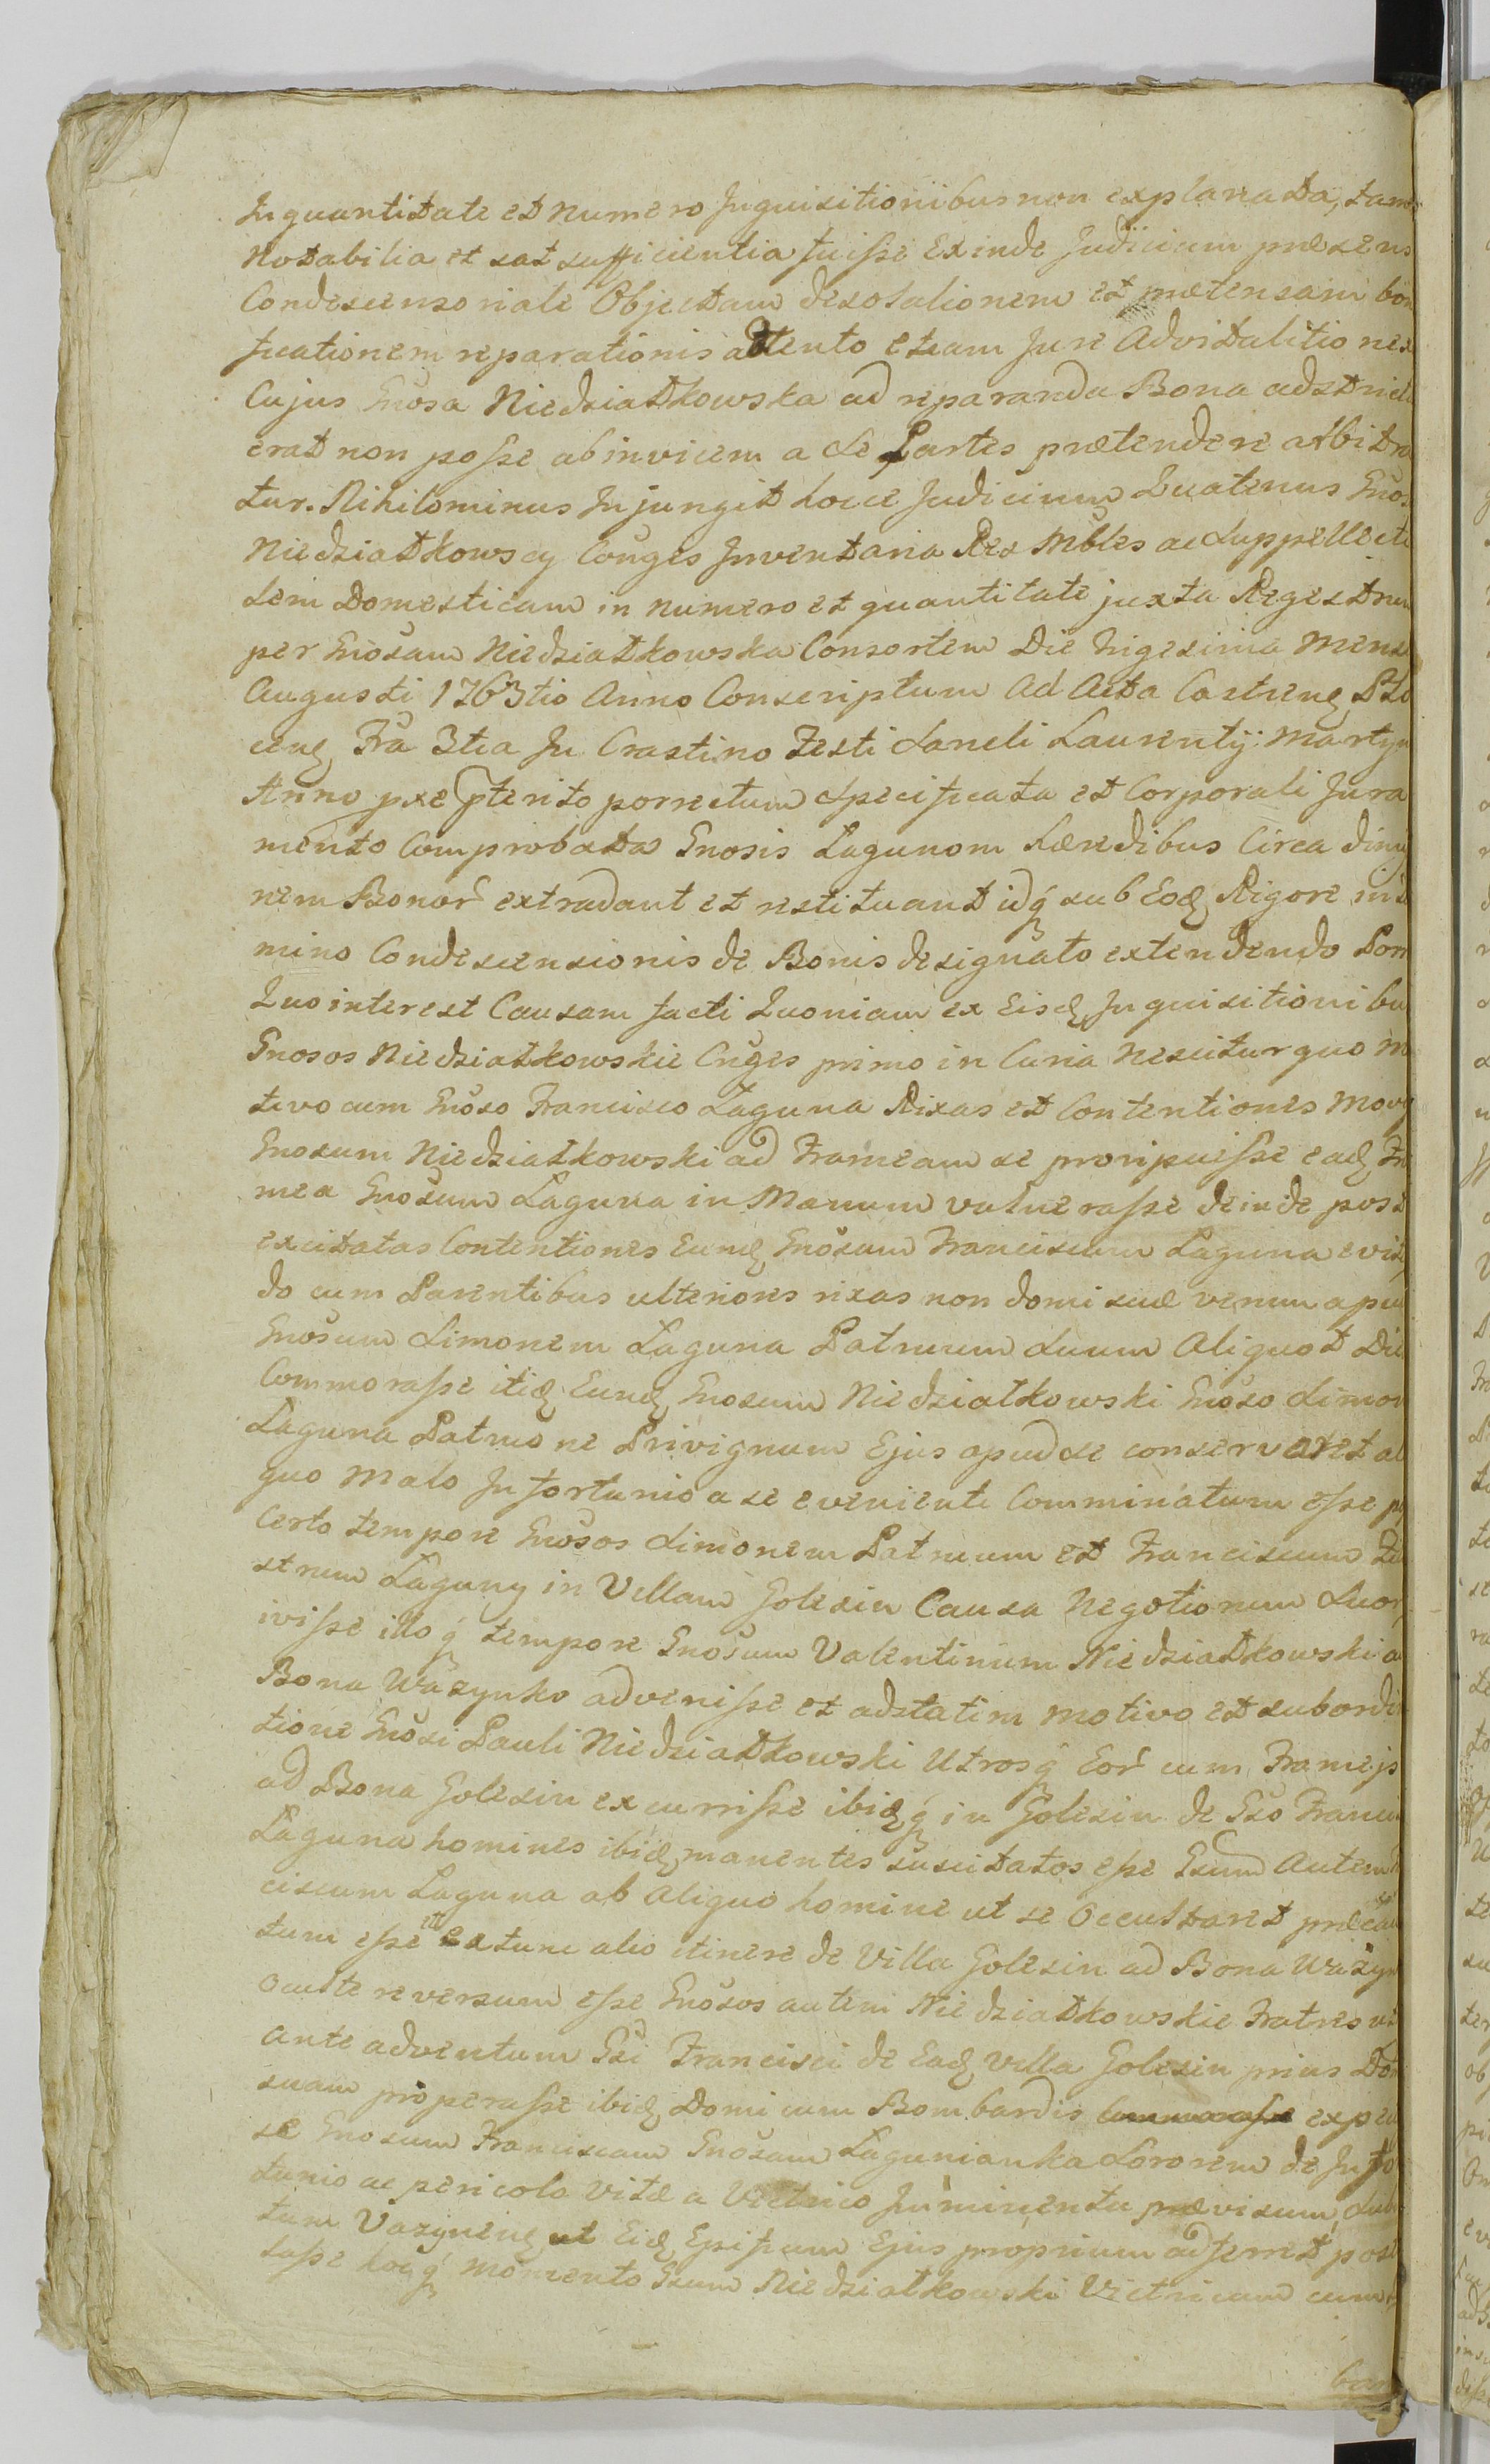 In quantitate et numero Inquisitionibus non explanata, tam
Notabilia et sat sufficientia fuisse Exinde Judicium præsens
Condescensoriale Objectam desolationem et prætensam bon
ficationem reparationis attento etiam Jure Advitalitio nex
Cujus Gnosa Niedziałkowska ad reparanda Bona adstrict
erat non posse abinvicem a se Partes prætendere arbitra
tur. Nihilominus Injungit hocce Judicium Quatenus Gnos
Niedziałkowscy Conges Inventaria Res Mbles ac Suppellecti
lem Domesticam in numero et quantitate juxta Regestrum
per Gnosam Niedziałkowska Consortem Die Vigesima Mens
Augusti 1763tio Anno Conscriptum Ad Acta Castren Plo
cen Fra 3tia In Crastino Festi Sancti Laurentij Martyr
Anno præpterito porrectum Specificata et Corporali Jura
mento Comprobata Gnosis Lagunom Hæredibus Circa dimi
nem Bonor extradant et restituant idq sub Eod Rigore int
mino Condescensionis de Bonis designato extendendo Porr
Quo interest Causam facti Quoniam ex Eisd Inquisitionibu
Gnosos Niedziałkowskie Cnges primo in Curia Nescitur quo m
tivo cum Gnoso Francisco Laguna Rixas et Contentiones Mov
Gnosum Niedziałkowski ad Frameam se proripuisse ead Fra
mea Gnosum Laguna in Manum vulnerasse deinde post
excitatas Contentiones Eund Gnosum Franciscum Laguna evit
do cum Parentibus ulteriores rixas non domi suæ verum apu
Gnosum Simonem Laguna Patruum Suum Aliquot Die
Commorasse itid Eund Gnosum Niedziałkowski Gnoso Simon
Laguna Patruo ne Privignum Ejus apud se conservaret al
quo Malo Infortunio a se eveniente Comminatum esse p
Certo tempore Gnosos Simonem Patruum et Franciscum
strum Laguny in Villam Golesin Causa Negotiorum Suor
ivisse illoq tempore Gnosum Valentinum Niedziałkowski a
Bona Ważynko advenisse et adstatim motivo et subordi
tione Gnosi Pauli Niedziałkowski Utrosq Eor cum Frameis
ad Bona Golesin excurrisse ibidq in Golesin de Gso Franci
Laguna homines ibid manentes suscitatos esse Gsum Autem
ciscum Laguna ab Aliquo homine ut se Occultaret præcau
tum esse et extunc alio itinere de Villa Golesin ad Bona Ważyn
oculte reversum esse Gnosos autem Niedziałkowskie Fratres
ante adventum Gsi Francisci de Ead Villa Golesin prius Dom
suam properasse ibid Domi cum Bombardis commorasse expec
se Gnosum Franciscum Gnosam Lagunianka Sororem de Infor
tunio ac periculo vitæ a Vitrico Imminentu prævisum, Sub
tum Vazynen ut Eid Episcum Ejus proprium adferret post
tasse hocq momento Gsum Niedziałkowski Victricum cum
bom